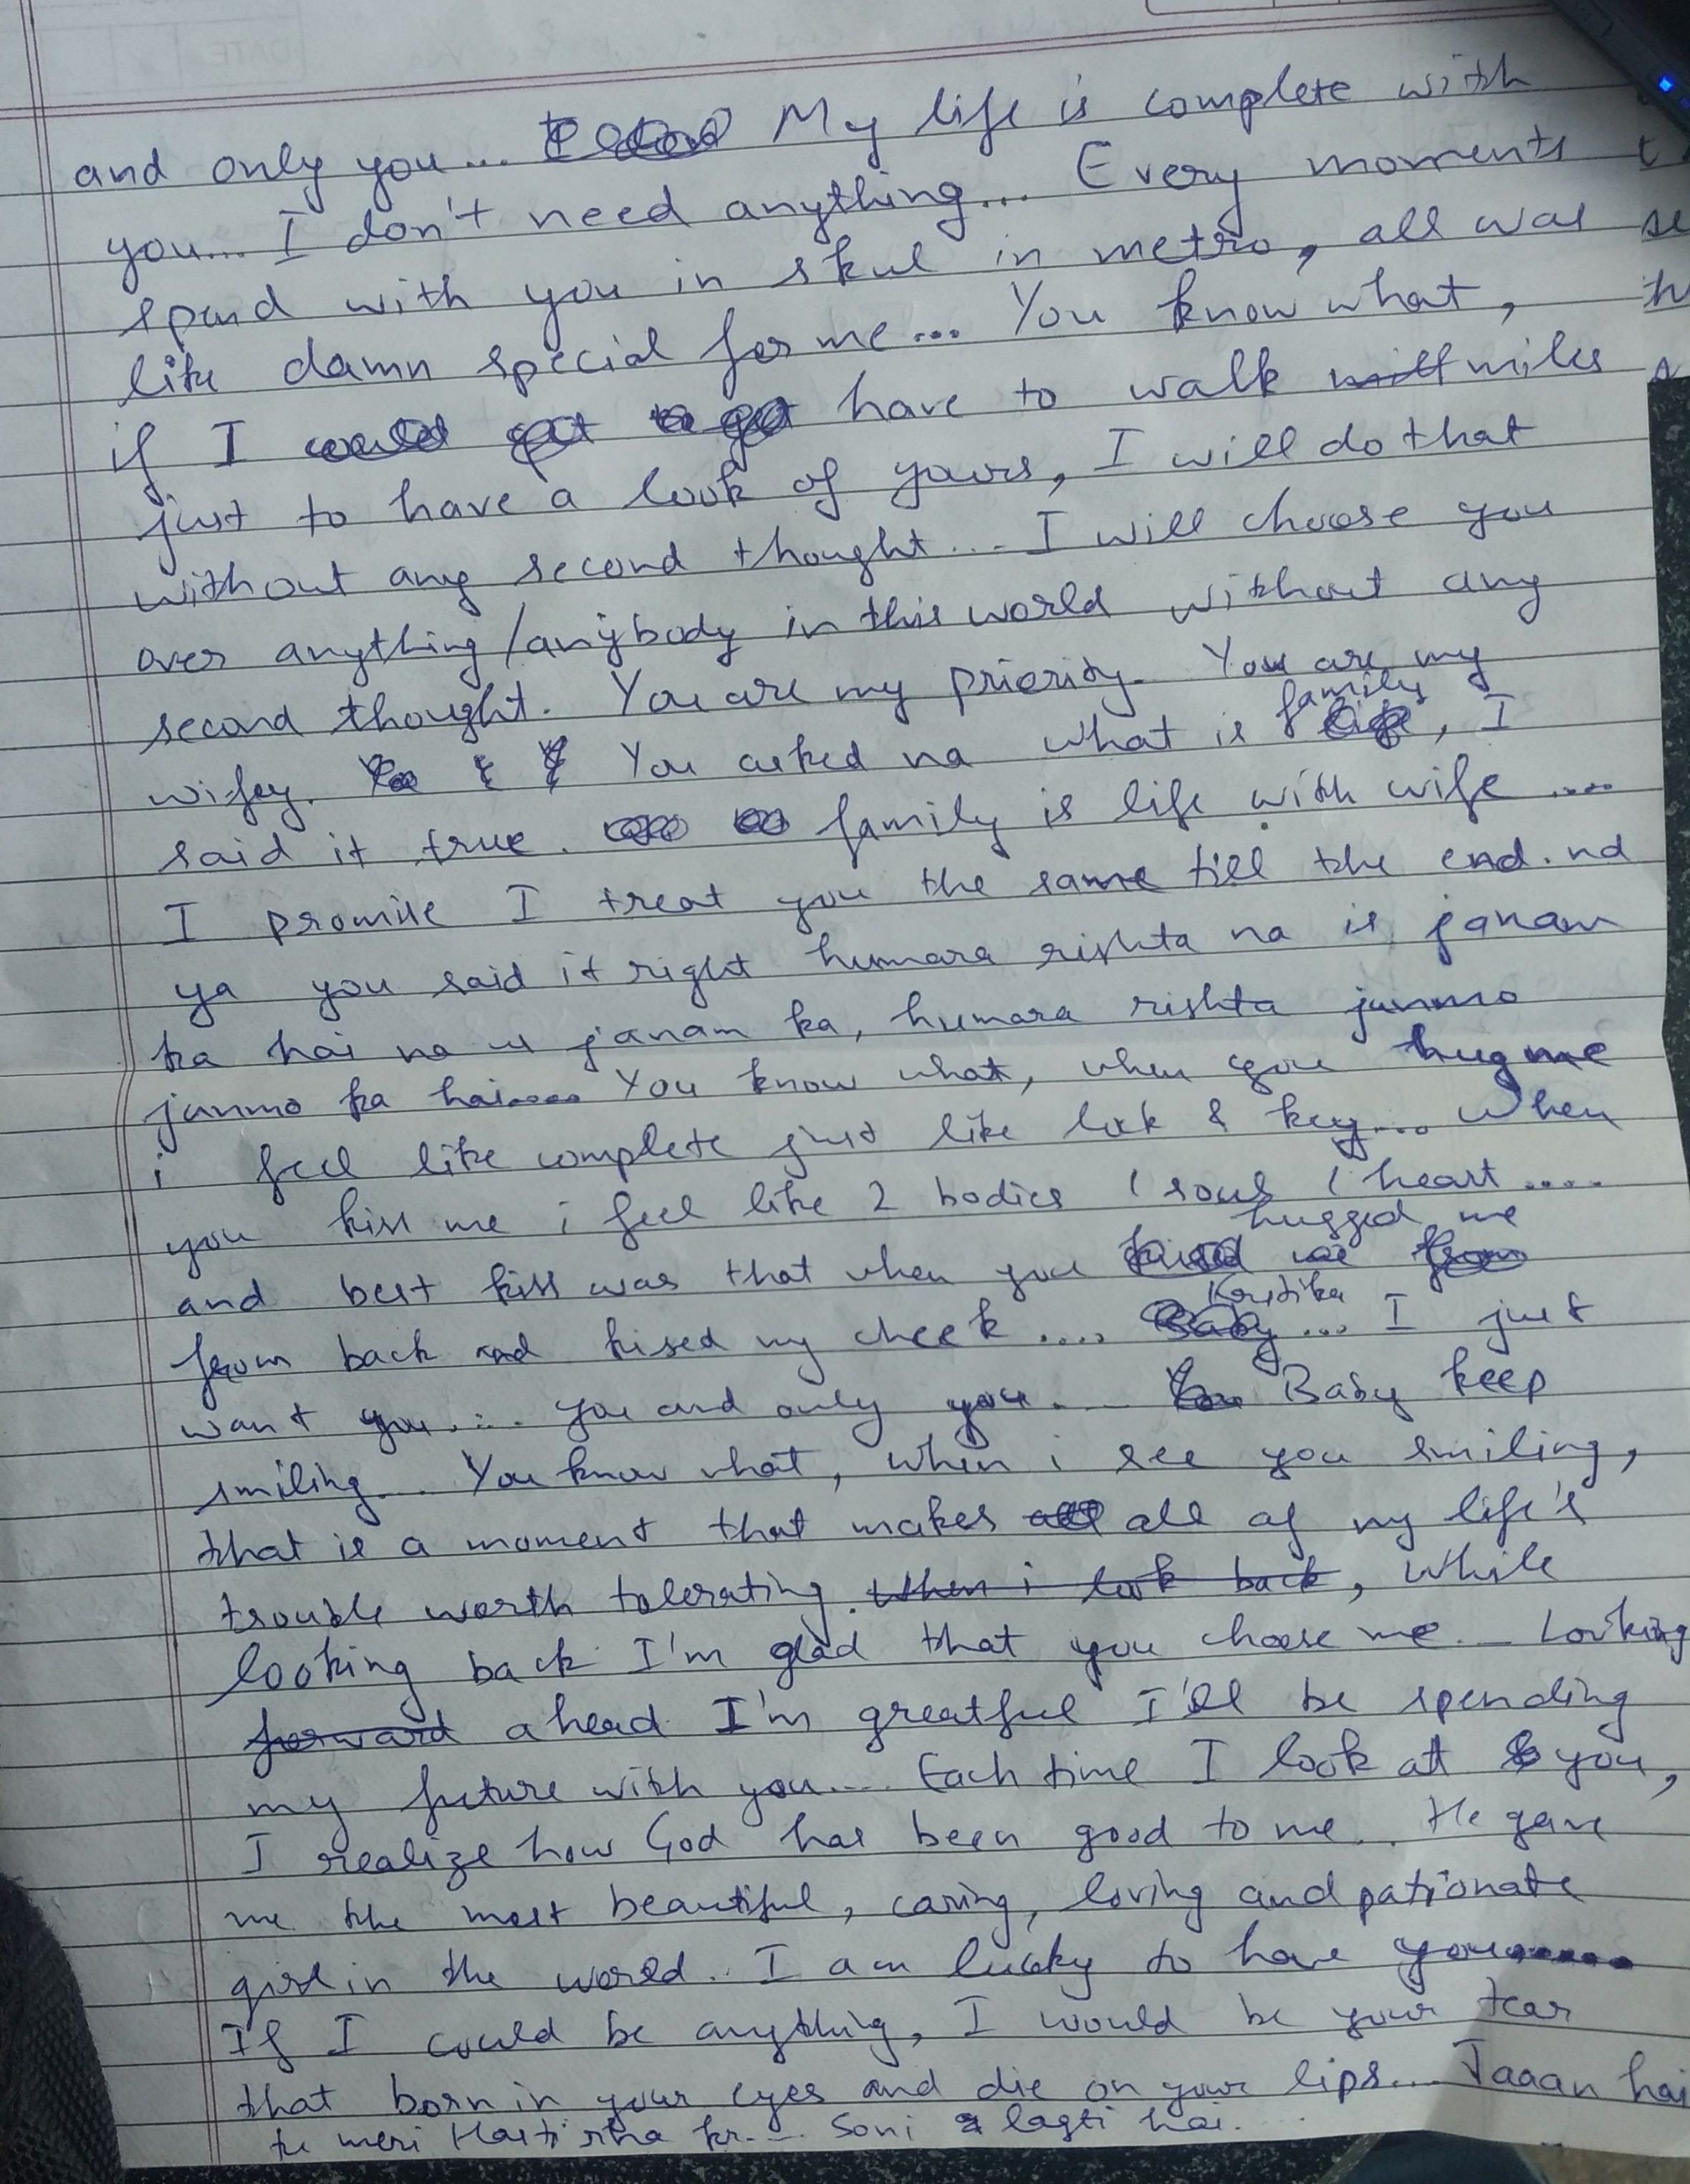 and only you... My life is complete with
you... I don't need anything... Every moments
spend with you in skul in metro, all was
like damn special for me... You know what,
if I have to walk miles
just to have a look of yours, I will do that
without any second thought... I will choose you
over anything/anybody in this world without any
second thought. You are my priority. You are my
wifey. You asked na what is family, I
said it true. family is life with wife ....
I promise I treat you the same till the end. nd
ya you said it right humara rishta na is janam
ka hai na us janam ka, humara rishta janmo
janmo ka hai..... You know what, when you hug me
i feel like complete just like lock & key.... When
you kiss me i feel like 2 bodies 1 soul 1 heart .....
and best kiss was that when you hugged me
from back and kissed my cheek .... Kritika ... I just
want you..... you and only you... Baby keep
smiling... You know what, when i see you smiling,
that is a moment that makes all of my life's
trouble worth tolerating. when i look back, while
looking back I'm glad that you choose me... Looking
forward ahead I'm greatful I'll be spending
my future with you.... Each time I look at you,
I realize how God has been good to me.. He gave
me the most beautiful, caring, loving and pationate
girl in the world.. I am lucky to have you......
If I could be anything, I would be your tear
that born in your eyes and die on your lips.... Jaaan hai
tu meri Hasti rha kr.... Soni lagti hai.....